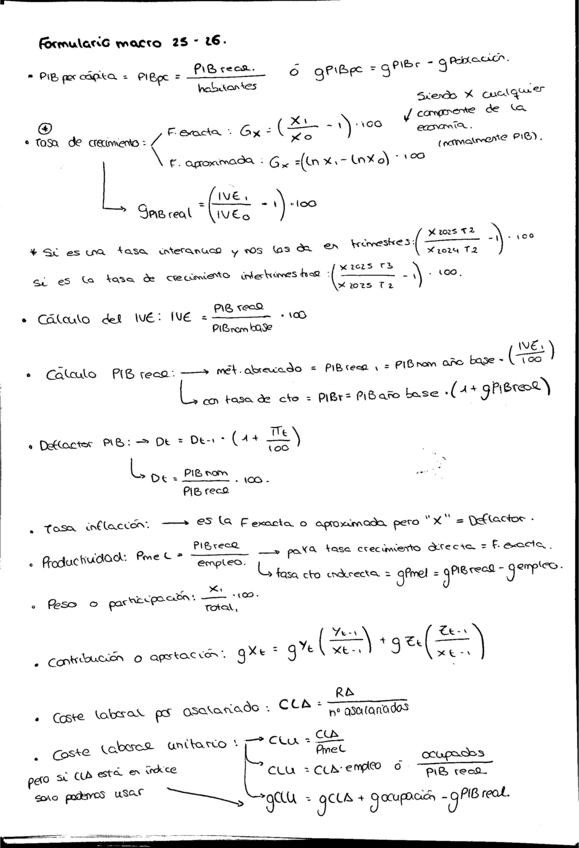 Formulario macro 25-26.
• PIB per cápita = PIBpc = PIB real. / habitantes ó gPIBpc = gPIBr - gPoblación.
Siendo X cualquier
componente de la
economía.
(normalmente PIB).
• Tasa de crecimiento: F. exacta: Gx = (X₁/X₀ - 1)·100
F. aproximada: Gx = (ln x₁ - ln x₀)·100
gPIBreal = (IVE₁/IVE₀ - 1)·100
* Si es una tasa interanual y nos las da en trimestres: (X2025T2/X2024T2 - 1)·100
Si es la tasa de crecimiento intertrimestral: (X2025T3/X2025T2 - 1)·100.
• Cálculo del IVE: IVE = PIB real / PIBnom base · 100
• Cálculo PIB real: → mét. abreviado = PIBreal₁ = PIBnom año base · (IVE₁/100)
↳ con tasa de cto = PIBr = PIB año base · (1 + gPIBreal)
• Deflactor PIB: → Dt = Dt-1 · (1 + πt/100)
↳ Dt = PIB nom / PIB real · 100.
• Tasa inflación: → es la F exacta o aproximada pero "X" = Deflactor.
• Productividad: PmeL = PIBreal / empleo. → para tasa crecimiento directa = F. exacta.
↳ tasa cto indirecta = gPmel = gPIBreal - gempleo.
• Peso o participación: X₁/Total₁ ·100.
• Contribución o aportación: gXt = gYt (Yt-1/Xt-1) + gZt (Zt-1/Xt-1)
• Coste laboral por asalariado: CLA = RA / nº asalariados
• Coste laboral unitario: → CLU = CLA / PmeL
CLU = CLA · empleo ó ocupados / PIB real
pero si CLA está en índice
solo podemos usar
gCLU = gCLA + gocupación - gPIBreal.